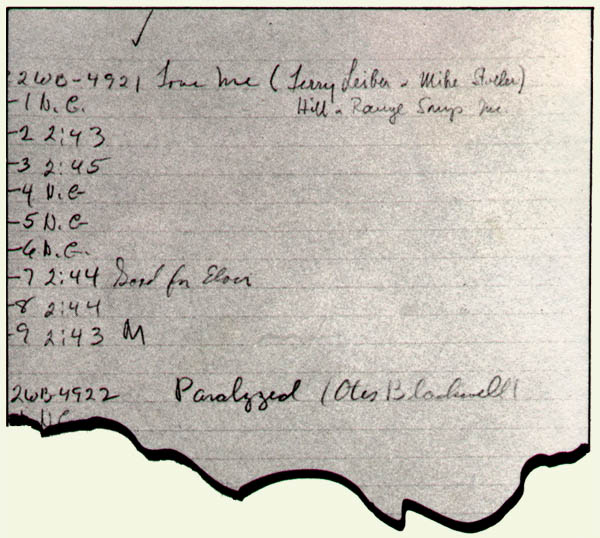 2WB-4921 Love Me (Jerry Leiber & Mike Stoller)
-1 N.G. Hill & Range Songs Inc.
-2 2:43
-3 2:45
-4 N.G
-5 N.G
-6 N.G.
-7 2:44 Good for Elvis
-8 2:44
-9 2:43 M
2WB-4922 Paralyzed (Otis Blackwell)